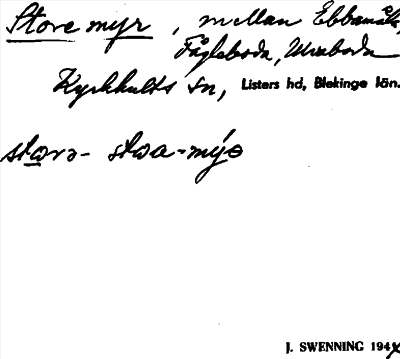 Store myr, mellan Ebbamåla,
Fågleboda, Ulvaboda
Kyrkhults sn, Listers hd, Blekinge län.
stora- stoa-mýɵ
J. SWENNING 194